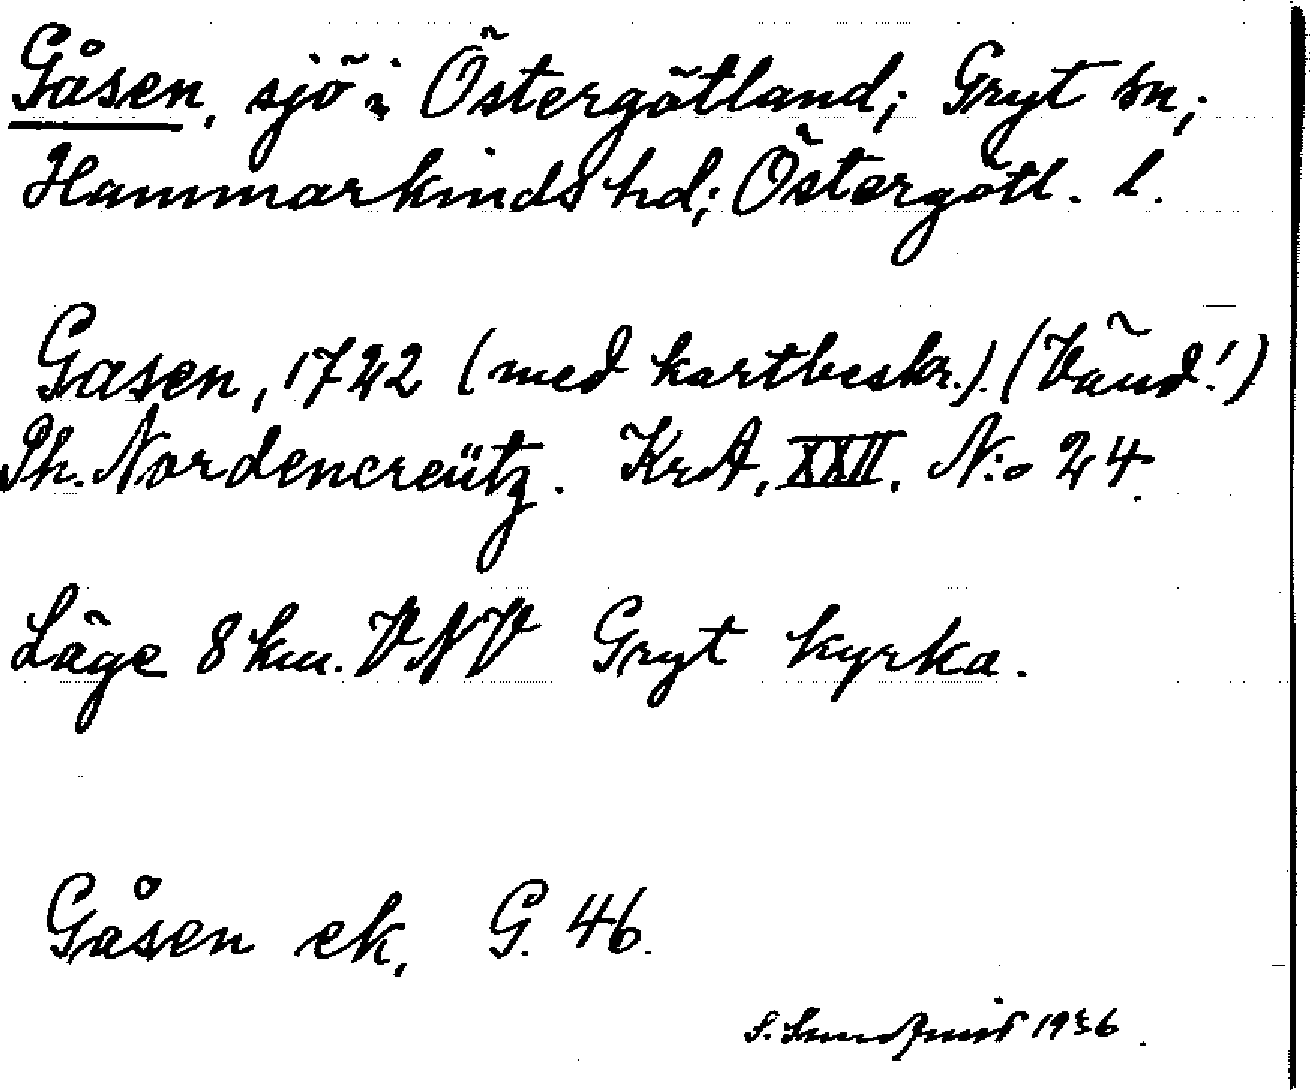 Gåsen, sjö i Östergötland; Gryt sn;
Hammarkinds hd; Östergötl. l.
Gasen, 1722 (med kartbeskr.). (Vänd!)
Ph. Nordencreütz. KrA, XXII. N:o 24.
Läge 8 km. VNV Gryt kyrka.
Gåsen ek. G. 46.
S. 1936.